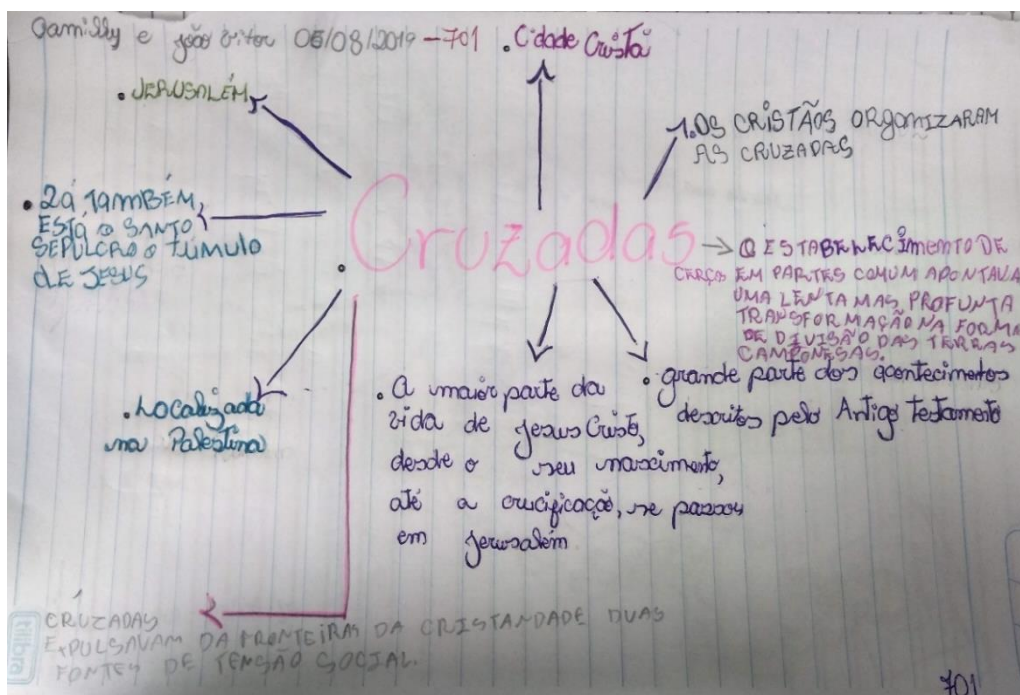 Gamilly e João Vitor 06/08/2019 - 701
. Cidade Cristã
. JERUSALÉM
1. OS CRISTÃOS ORGANIZARAM
AS CRUZADAS
. Lá TAMBÉM,
ESTÁ O SANTO
SEPULCRO O TÚMULO
DE JESUS
. Cruzadas
O ESTABELECIMENTO DE
CERCAS EM PARTES COMUM APONTAVA
UMA LENTA MAS PROFUNTA
TRANSFORMAÇÃO NA FORMA
DE DIVISÃO DAS TERRAS
CAMPONESAS.
. Localizada
na Palestina
. A maior parte da
vida de Jesus Cristo,
desde o seu nascimento,
até a crucificação, se passou
em Jerusalém
. grande parte dos acontecimentos
descritos pelo Antigo testamento
CRUZADAS
EXPULSAVAM DA FRONTEIRAS DA CRISTANDADE DUAS
FONTES DE TENSÃO SOCIAL.
tilibra
701